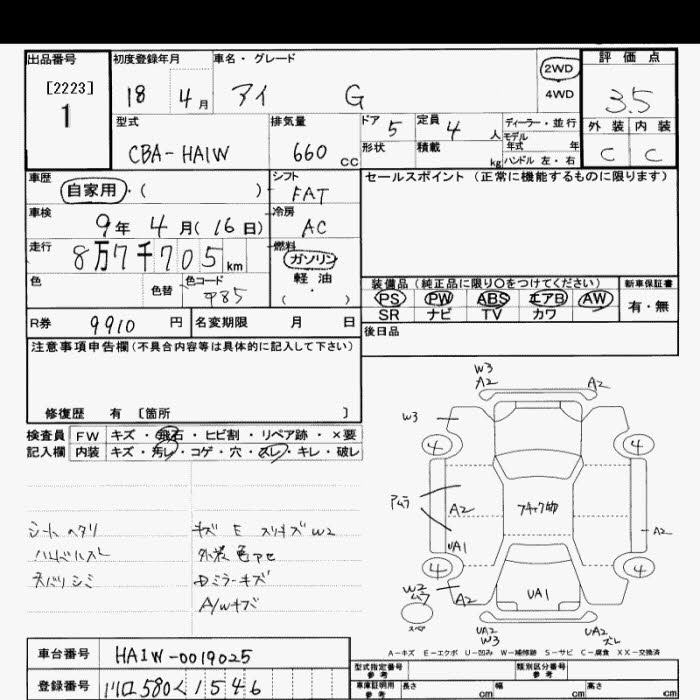 出品番号 初度登録年月 車名・グレード 2WD 評価点
[2223] 18 4月 アイ G 4WD 3.5
1
型式 排気量 ドア 5 定員 4人 ディーラー・並行 外装 内装
CBA-HA1W 660cc 形状 積載 kg モデル年式 年 ハンドル 左・右 C C
車歴 自家用・( ) シフト FAT セールスポイント (正常に機能するものに限ります)
車検 9年 4月(16日) 冷房 AC
走行 8万7千705km 燃料 ガソリン
色 色替 色コード P85 軽油
・( )
装備品 (純正品に限り〇をつけてください) 新車保証書
PS PW ABS エアB AW 有・無
SR ナビ TV カワ
R券 9910円 名変期限 月 日 後日品
注意事項申告欄(不具合内容等は具体的に記入して下さい)
修復歴 有 [箇所 ]
検査員 FW キズ・飛石・ヒビ割・リペア跡・×要
記入欄 内装 キズ・汚レ・コゲ・穴・スレ・キレ・破レ
シートヘタリ キズ E スリキズ W2
ハンドルスレ 外装色アセ
ネバリシミ Dミラーキズ
A/Wキズ
W3
A2 A2
W3
4 4
アムラ
A2 A2
UA1
4 4
W2
ムラ
A2 UA1
スペア UA2 UA2
W3 ズレ
A-キズ E-エクボ U-凹み W-補修跡 S-サビ C-腐食 XX-交換済
車台番号 HA1W-0019025
型式指定番号 参考 類別区分番号 参考
登録番号 川口 580 く 1546
車庫証明用 参考 長さ cm 幅 cm 高さ cm